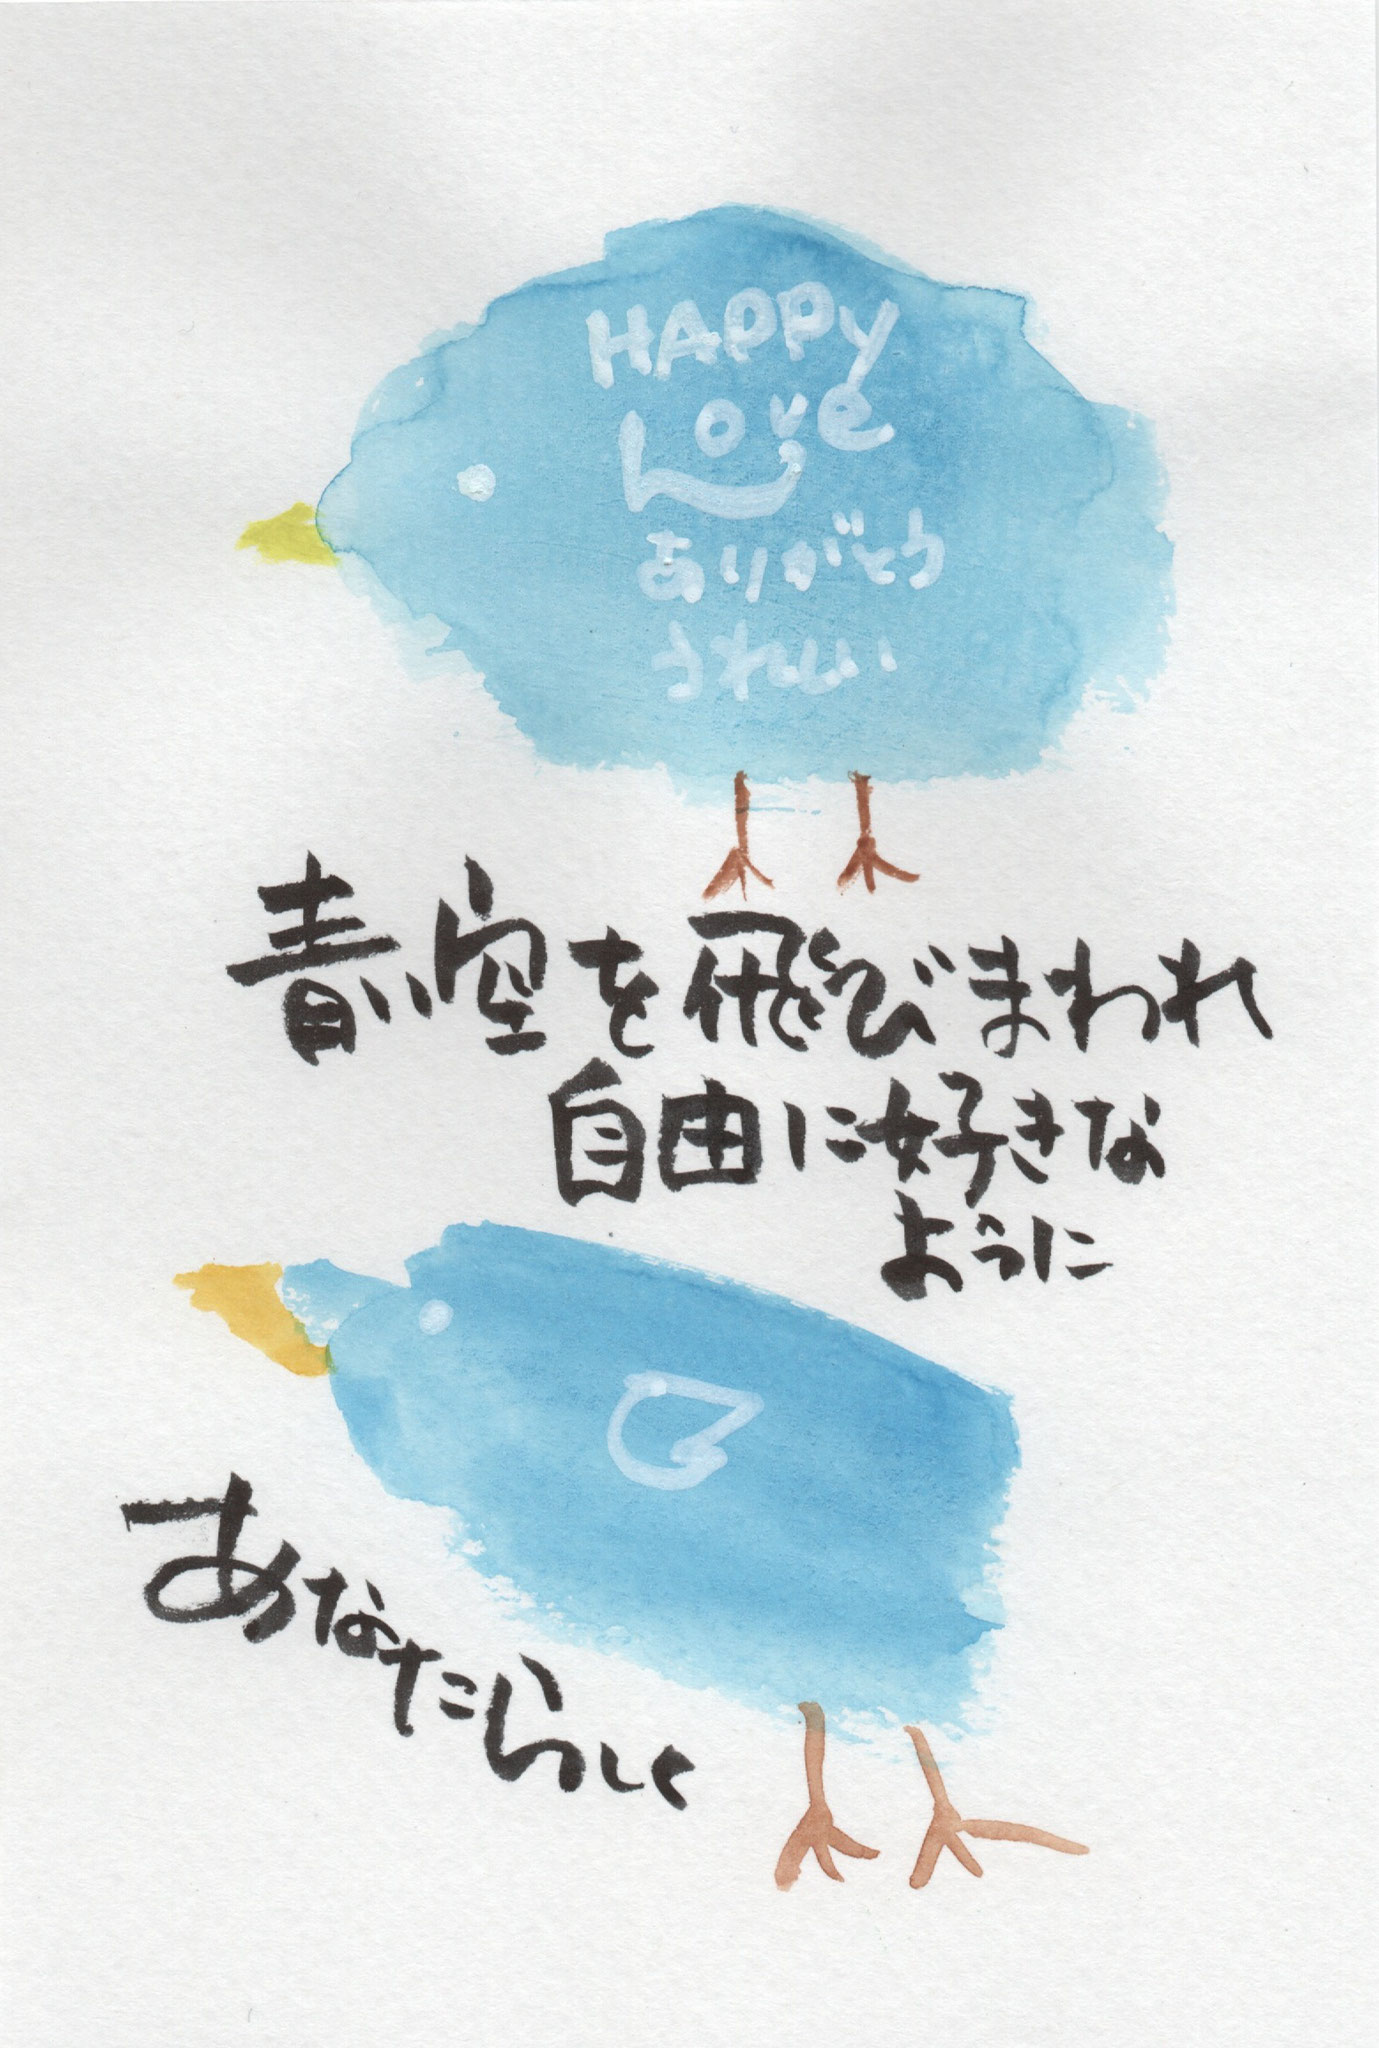 HAPPY
Love
ありがとう
うれしい
青い空を飛びまわれ
自由に好きな
ように
あなたらしく